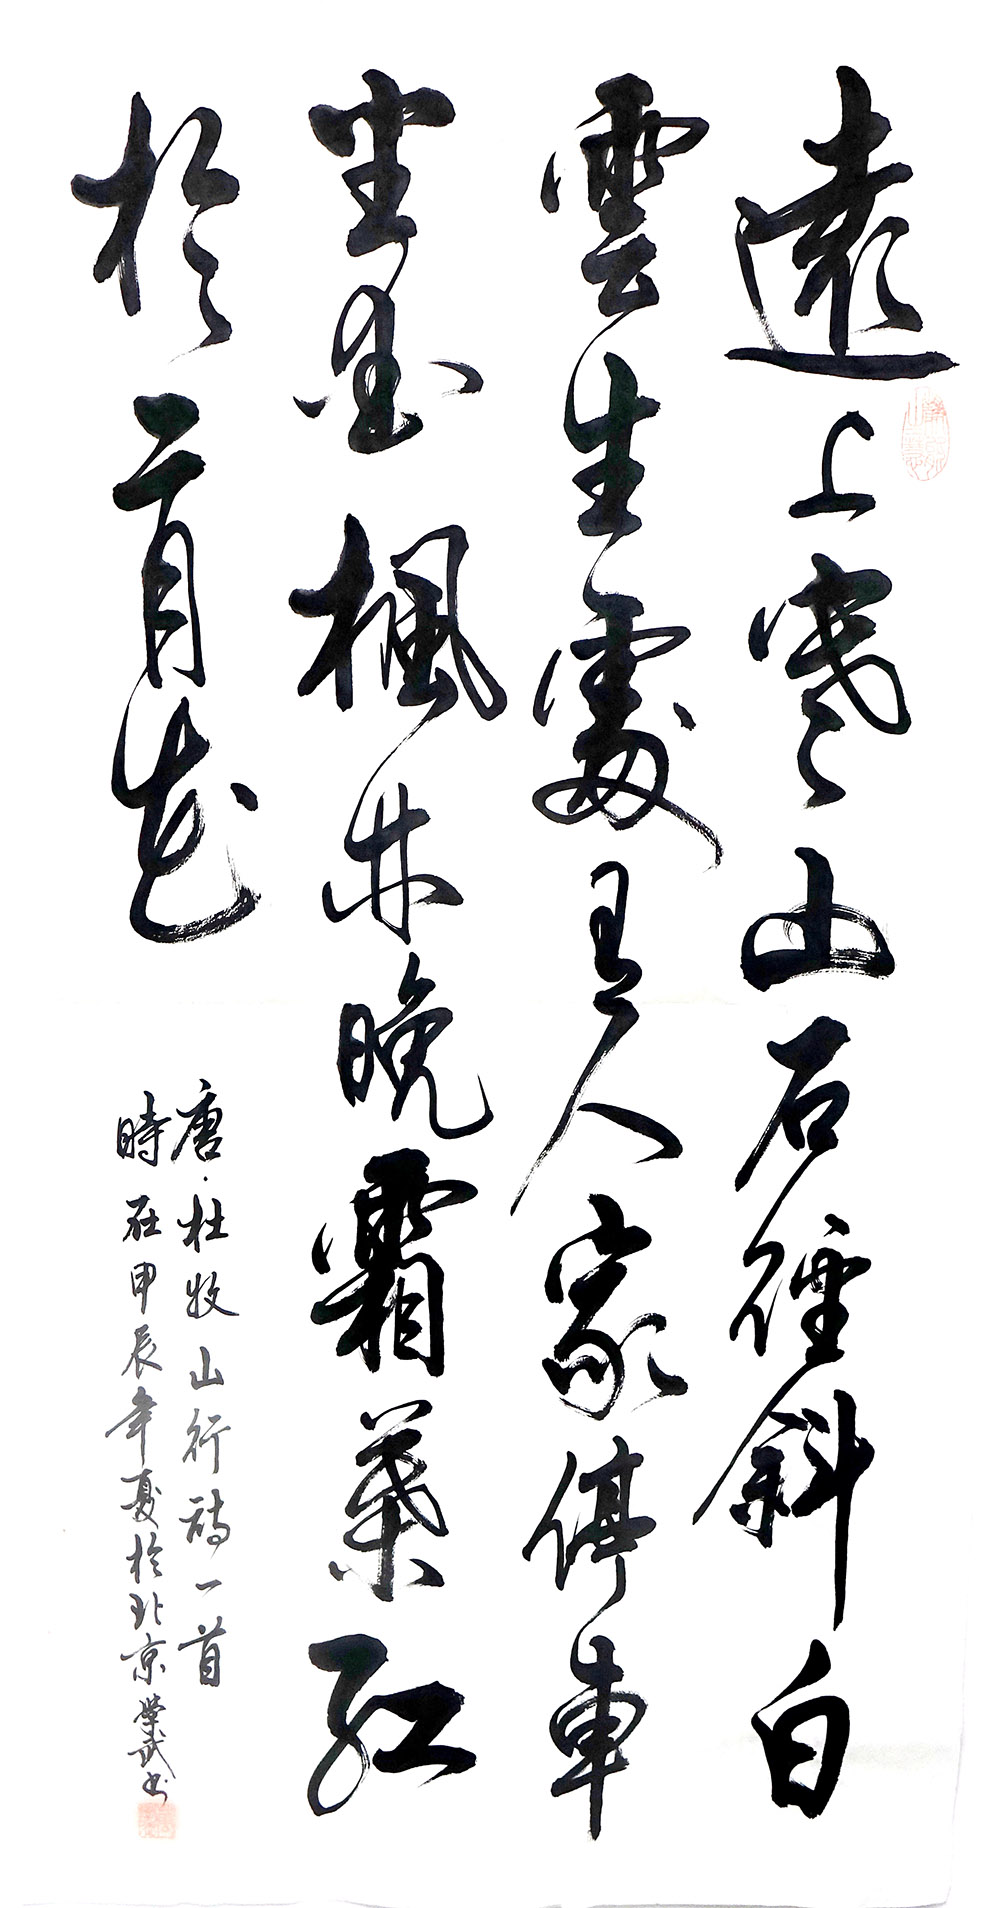 遠上寒山石徑斜白
雲生處有人家停車
坐愛楓林晚霜葉紅
於二月花
唐·杜牧山行詩一首
時在甲辰年夏於北京學武书